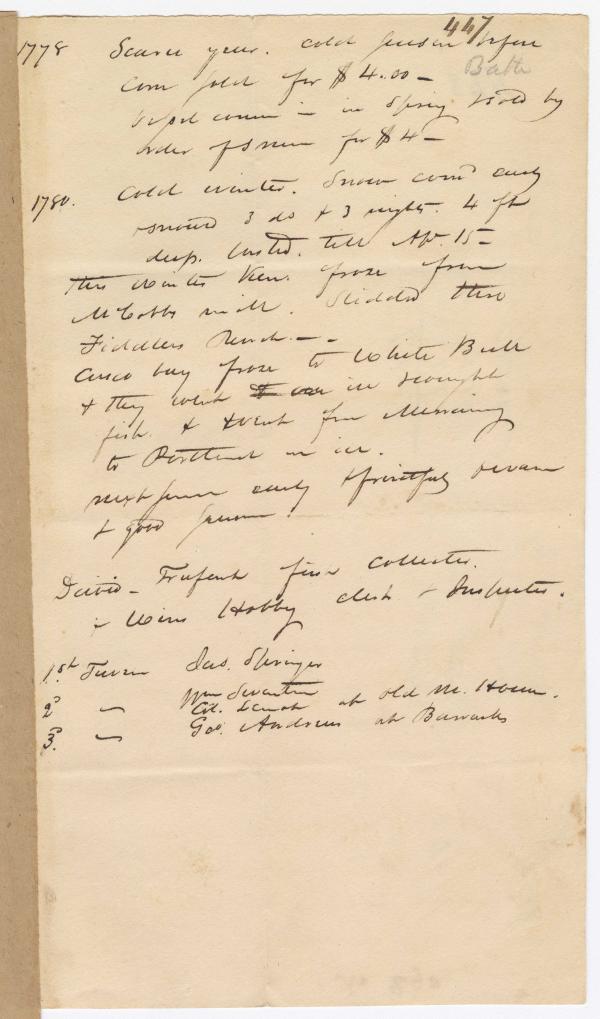 447
Bath
1778 Scarce year. Cold season before
corn sold for $4.00 -
in Spring & sold by
order of for $4 -
1780. Cold winter. Snow com'd early
snowed 3 ds & 3 nights. 4 ft
deep. lasted. till Apr. 15 -
This winter Ken. froze from
McCobbs mill. Sledded thro
Fiddlers Reach. - -
Casco bay froze to White Bull
& they went in ice & caught
fish. & went from
to Portland on ice.
next early & fruitful
& good
David - Trufant first Collector.
Hobby Clerk & Inspector.
1.st Tavern Jas. Springer
2d " Wm Swanton
Col. Lamb at old M. House.
3d. " Geo. Andrews at